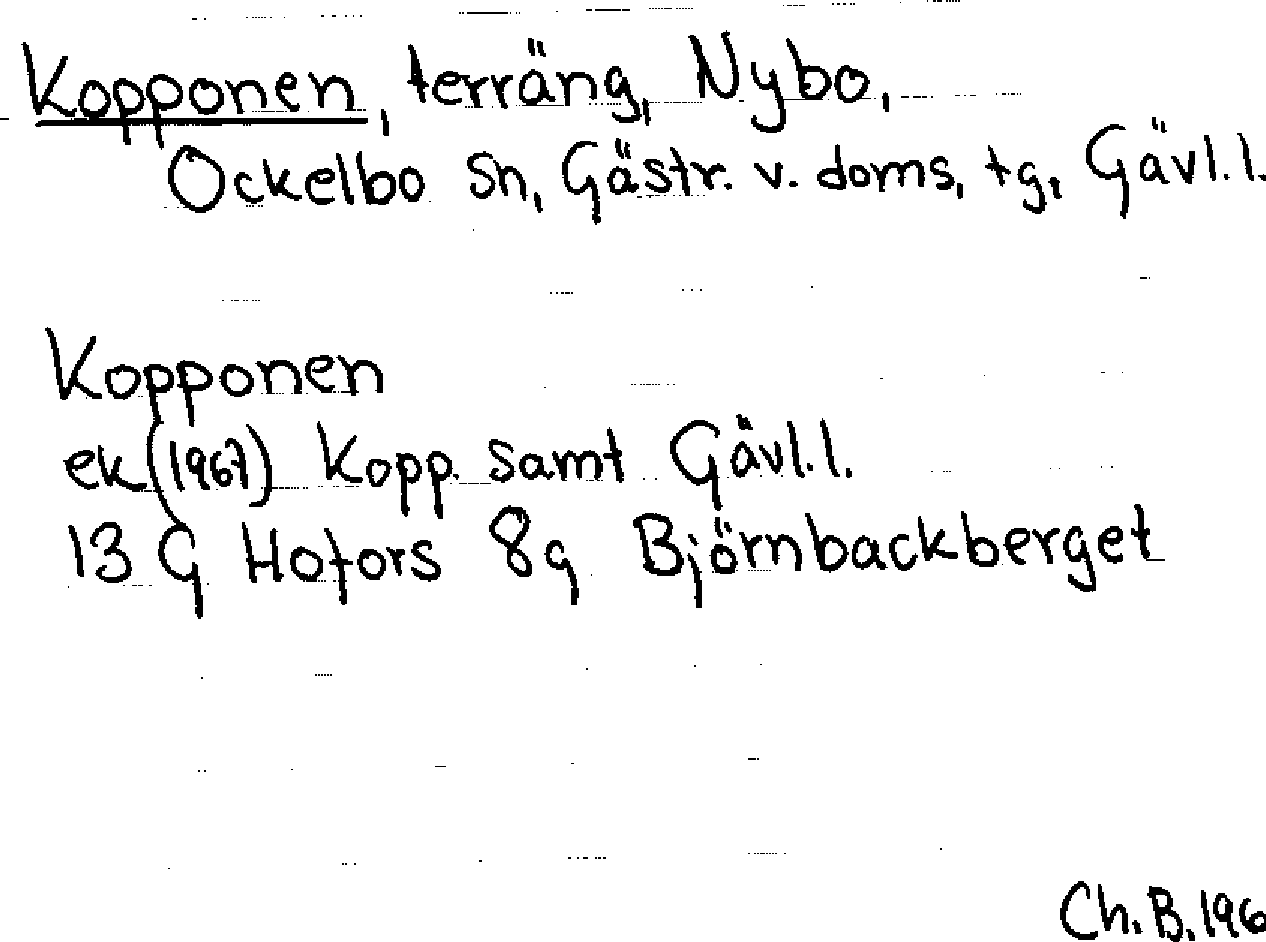 Kopponen, terräng, Nybo,
Ockelbo sn, Gästr. v. doms, tg, Gävl.l.
Kopponen
ek (1967) Kopp. samt Gävl.l.
13 G Hofors 8g Björnbackberget
Ch.B.196